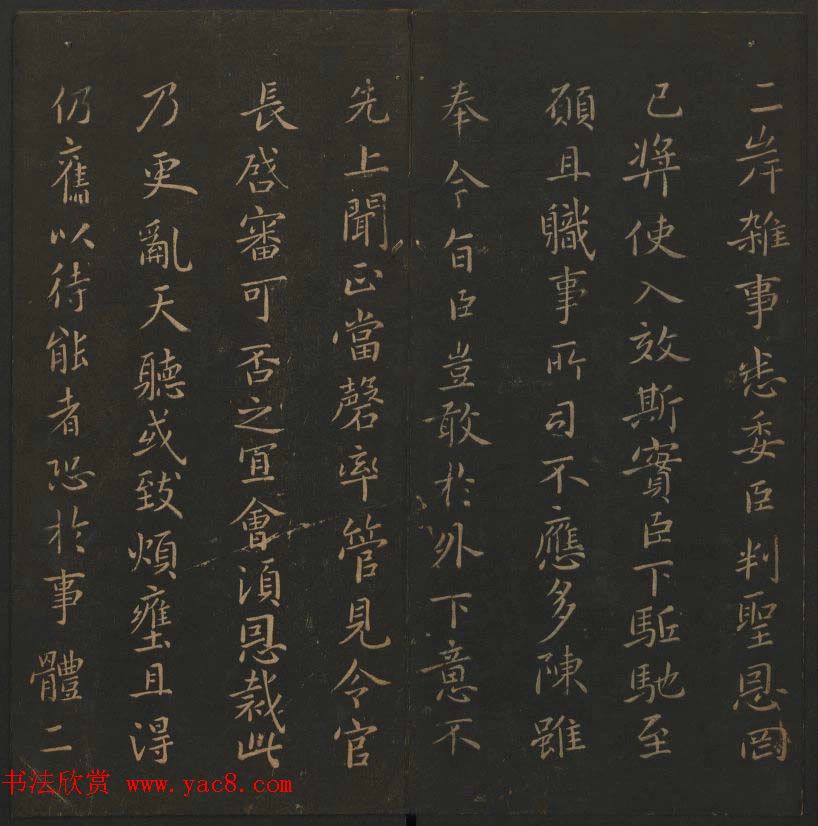 二岸雜事悉委臣判聖恩罔
已獎使入效斯實臣下駈馳至
願且職事所司不應多陳雖
奉令旨臣豈敢於外下意不
先上聞正當罄率管見令官
長啓審可否之宜會湏恩裁此
乃更亂天聽或致煩壅且淂
仍舊以待能者恐於事體二
书法欣赏 www.yac8.com